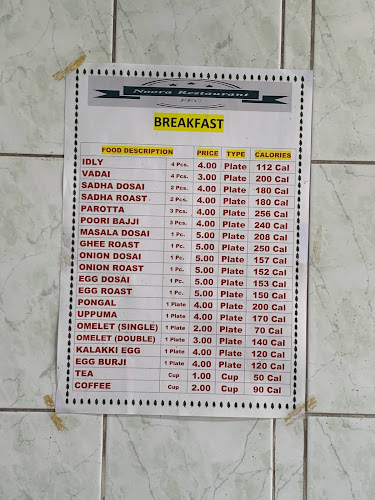 Noora Restaurant
FFC
BREAKFAST
FOOD DESCRIPTION PRICE TYPE CALORIES
IDLY 4 Pcs. 4.00 Plate 112 Cal
VADAI 4 Pcs. 3.00 Plate 200 Cal
SADHA DOSAI 2 Pcs. 4.00 Plate 180 Cal
SADHA ROAST 2 Pcs. 4.00 Plate 180 Cal
PAROTTA 3 Pcs. 4.00 Plate 256 Cal
POORI BAJJI 3 Pcs. 4.00 Plate 240 Cal
MASALA DOSAI 1 Pc. 5.00 Plate 208 Cal
GHEE ROAST 1 Pc. 5.00 Plate 250 Cal
ONION DOSAI 1 Pc. 5.00 Plate 157 Cal
ONION ROAST 1 Pc. 5.00 Plate 152 Cal
EGG DOSAI 1 Pc. 5.00 Plate 153 Cal
EGG ROAST 1 Pc. 5.00 Plate 150 Cal
PONGAL 1 Plate 4.00 Plate 200 Cal
UPPUMA 1 Plate 4.00 Plate 170 Cal
OMELET (SINGLE) 1 Plate 2.00 Plate 70 Cal
OMELET (DOUBLE) 1 Plate 3.00 Plate 140 Cal
KALAKKI EGG 1 Plate 4.00 Plate 120 Cal
EGG BURJI 1 Plate 4.00 Plate 120 Cal
TEA Cup 1.00 Cup 50 Cal
COFFEE Cup 2.00 Cup 90 Cal